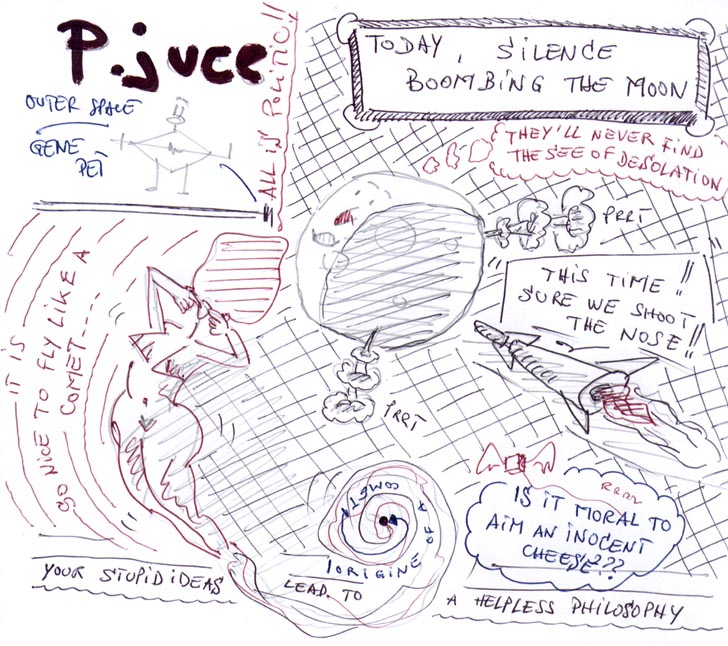 P.juce
ALL IS POLITIC!!
OUTER SPACE
GENE
PET
TODAY, SiLENCE
BOOMBiNG THE MOON
THEY'LL NEVER FIND
THE SEE OF DESOLATION
PRRT
"THIS TIME!!
SURE WE SHOOT
THE NOSE!!
PRRT
IT IS
SO NICE TO FLY LIKE A
COMET----
RRRR
IS iT MORAL TO
AiM AN iNOCENT
CHEESE???
1ORIGINE OF A COMETT
YOUR STUPID IDEAS
LEAD TO
A HELPLESS PHiLOSOPHY